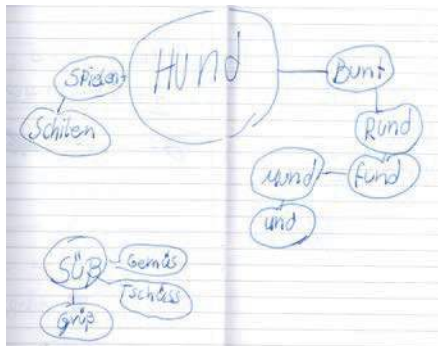 Hund
Spielen
Schilen
Bunt
Rund
Fund
Mund
und
SÜß
Gemüs
Tschüss
Grüß